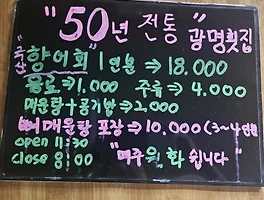 "50년 전통" 광명횟집
국산 향어회 1인분 ⇒ 18,000
음료 ⇒ 1,000 주류 ⇒ 4,000
매운탕+공기밥 ⇒ 2,000
매운탕 포장 ⇒ 10,000 (3~4인분)
open 11:30
close 8:00 "매주 월, 화 쉽니다"